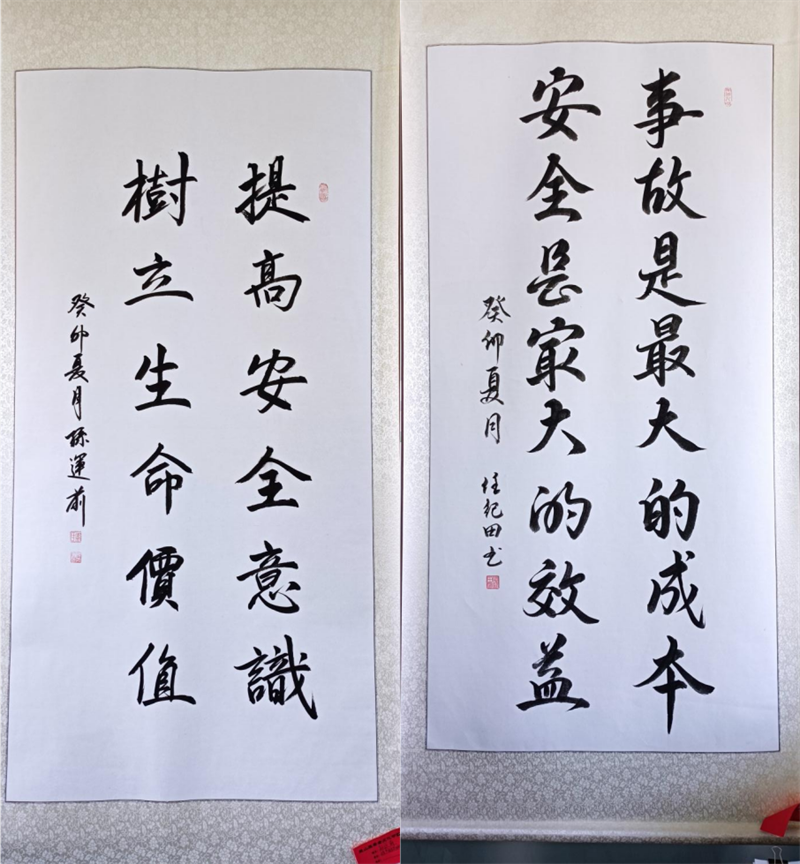 提高安全意識
樹立生命價值
癸卯夏月孫運前
事故是最大的成本
安全是最大的效益
癸卯夏月 任紀田书